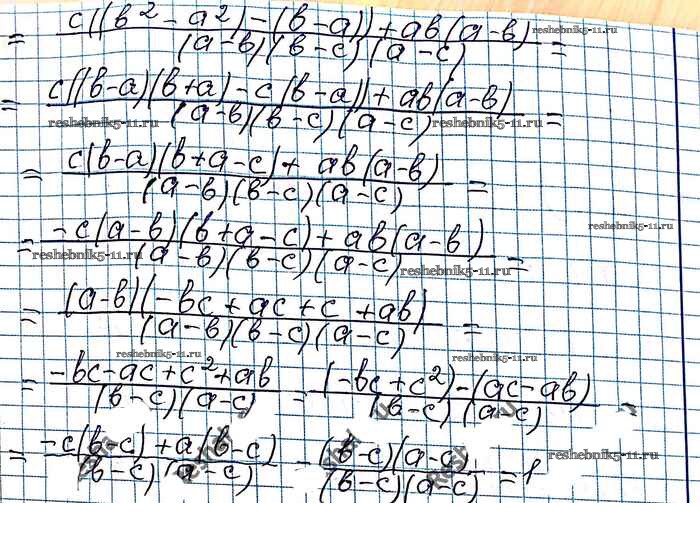 = c((в² - a²) - (в - a)) + aв(a-в) / (a-в)(в-c)(a-c) =
reshebnik5-11.ru
= c((в-a)(в+a) - c(в-a)) + aв(a-в) / (a-в)(в-c)(a-c) =
reshebnik5-11.ru reshebnik5-11.ru
= c(в-a)(в+a-c) + aв(a-в) / (a-в)(в-c)(a-c) =
reshebnik5-11.ru
= -c(a-в)(в+a-c) + aв(a-в) / (a-в)(в-c)(a-c) =
reshebnik5-11.ru reshebnik5-11.ru
= (a-в)(-вc + ac + c + aв) / (a-в)(в-c)(a-c) =
reshebnik5-11.ru reshebnik5-11.ru
= -вc - ac + c² + aв / (в-c)(a-c) = (-вc + c²) - (ac - aв) / (в-c)(a-c) =
= -c(в-c) + a(в-c) / (в-c)(a-c) = (в-c)(a-c) / (в-c)(a-c) = 1
reshebnik5-11.ru